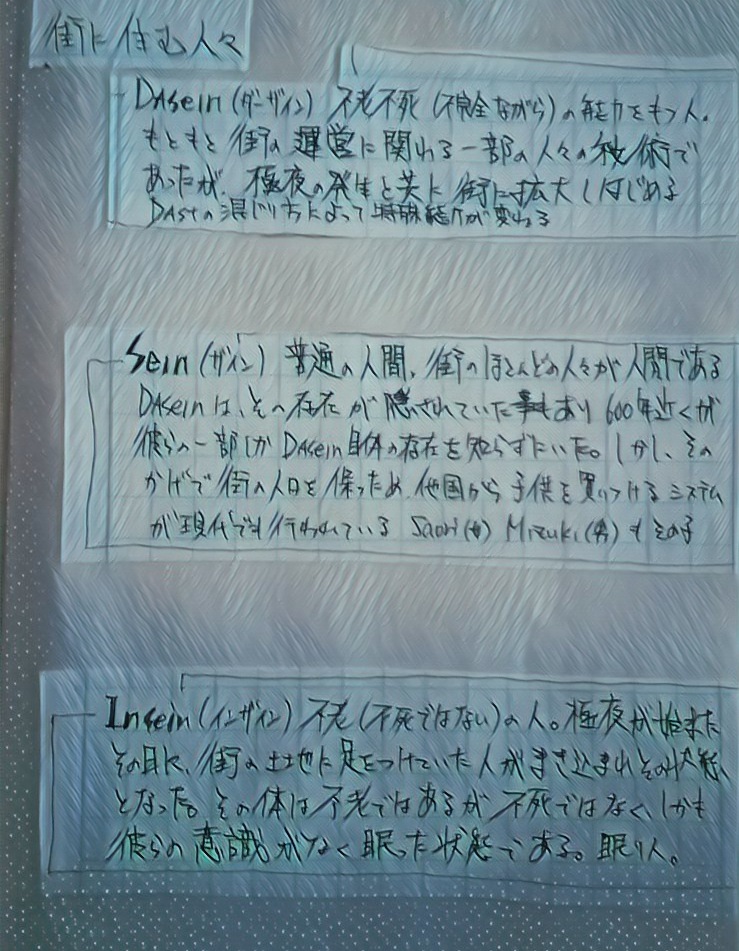 街に住む人々
Dasein (ダーザイン) 不老不死 (不完全ながら) の能力をもつ人。
もともと街の運営に関わる一部の人々の秘術で
あったが、極夜の発生と共に街に拡大しはじめる
DAstの混じり方によって特殊能力が変わる
Sein (ザイン) 普通の人間、街のほとんどの人々が人間である
Daseinは、その存在が隠されていた あり 600年近くが
彼らの一部しかDasein自体の存在を知らずにいた。しかし、その
かげで街の人口を保つため、他国から子供を買いつけるシステム
が現代でも行われている Saori(女) Mizuki(男)もその子
Insein (インザイン) 不老(不死ではない)の人。極夜が始まった
その日に、街の土地に足をつけていた人がまき込まれその状態
となった。その体は不老ではあるが不死ではなく、しかも
彼らの意識がなく眠った状態である。眠り人。